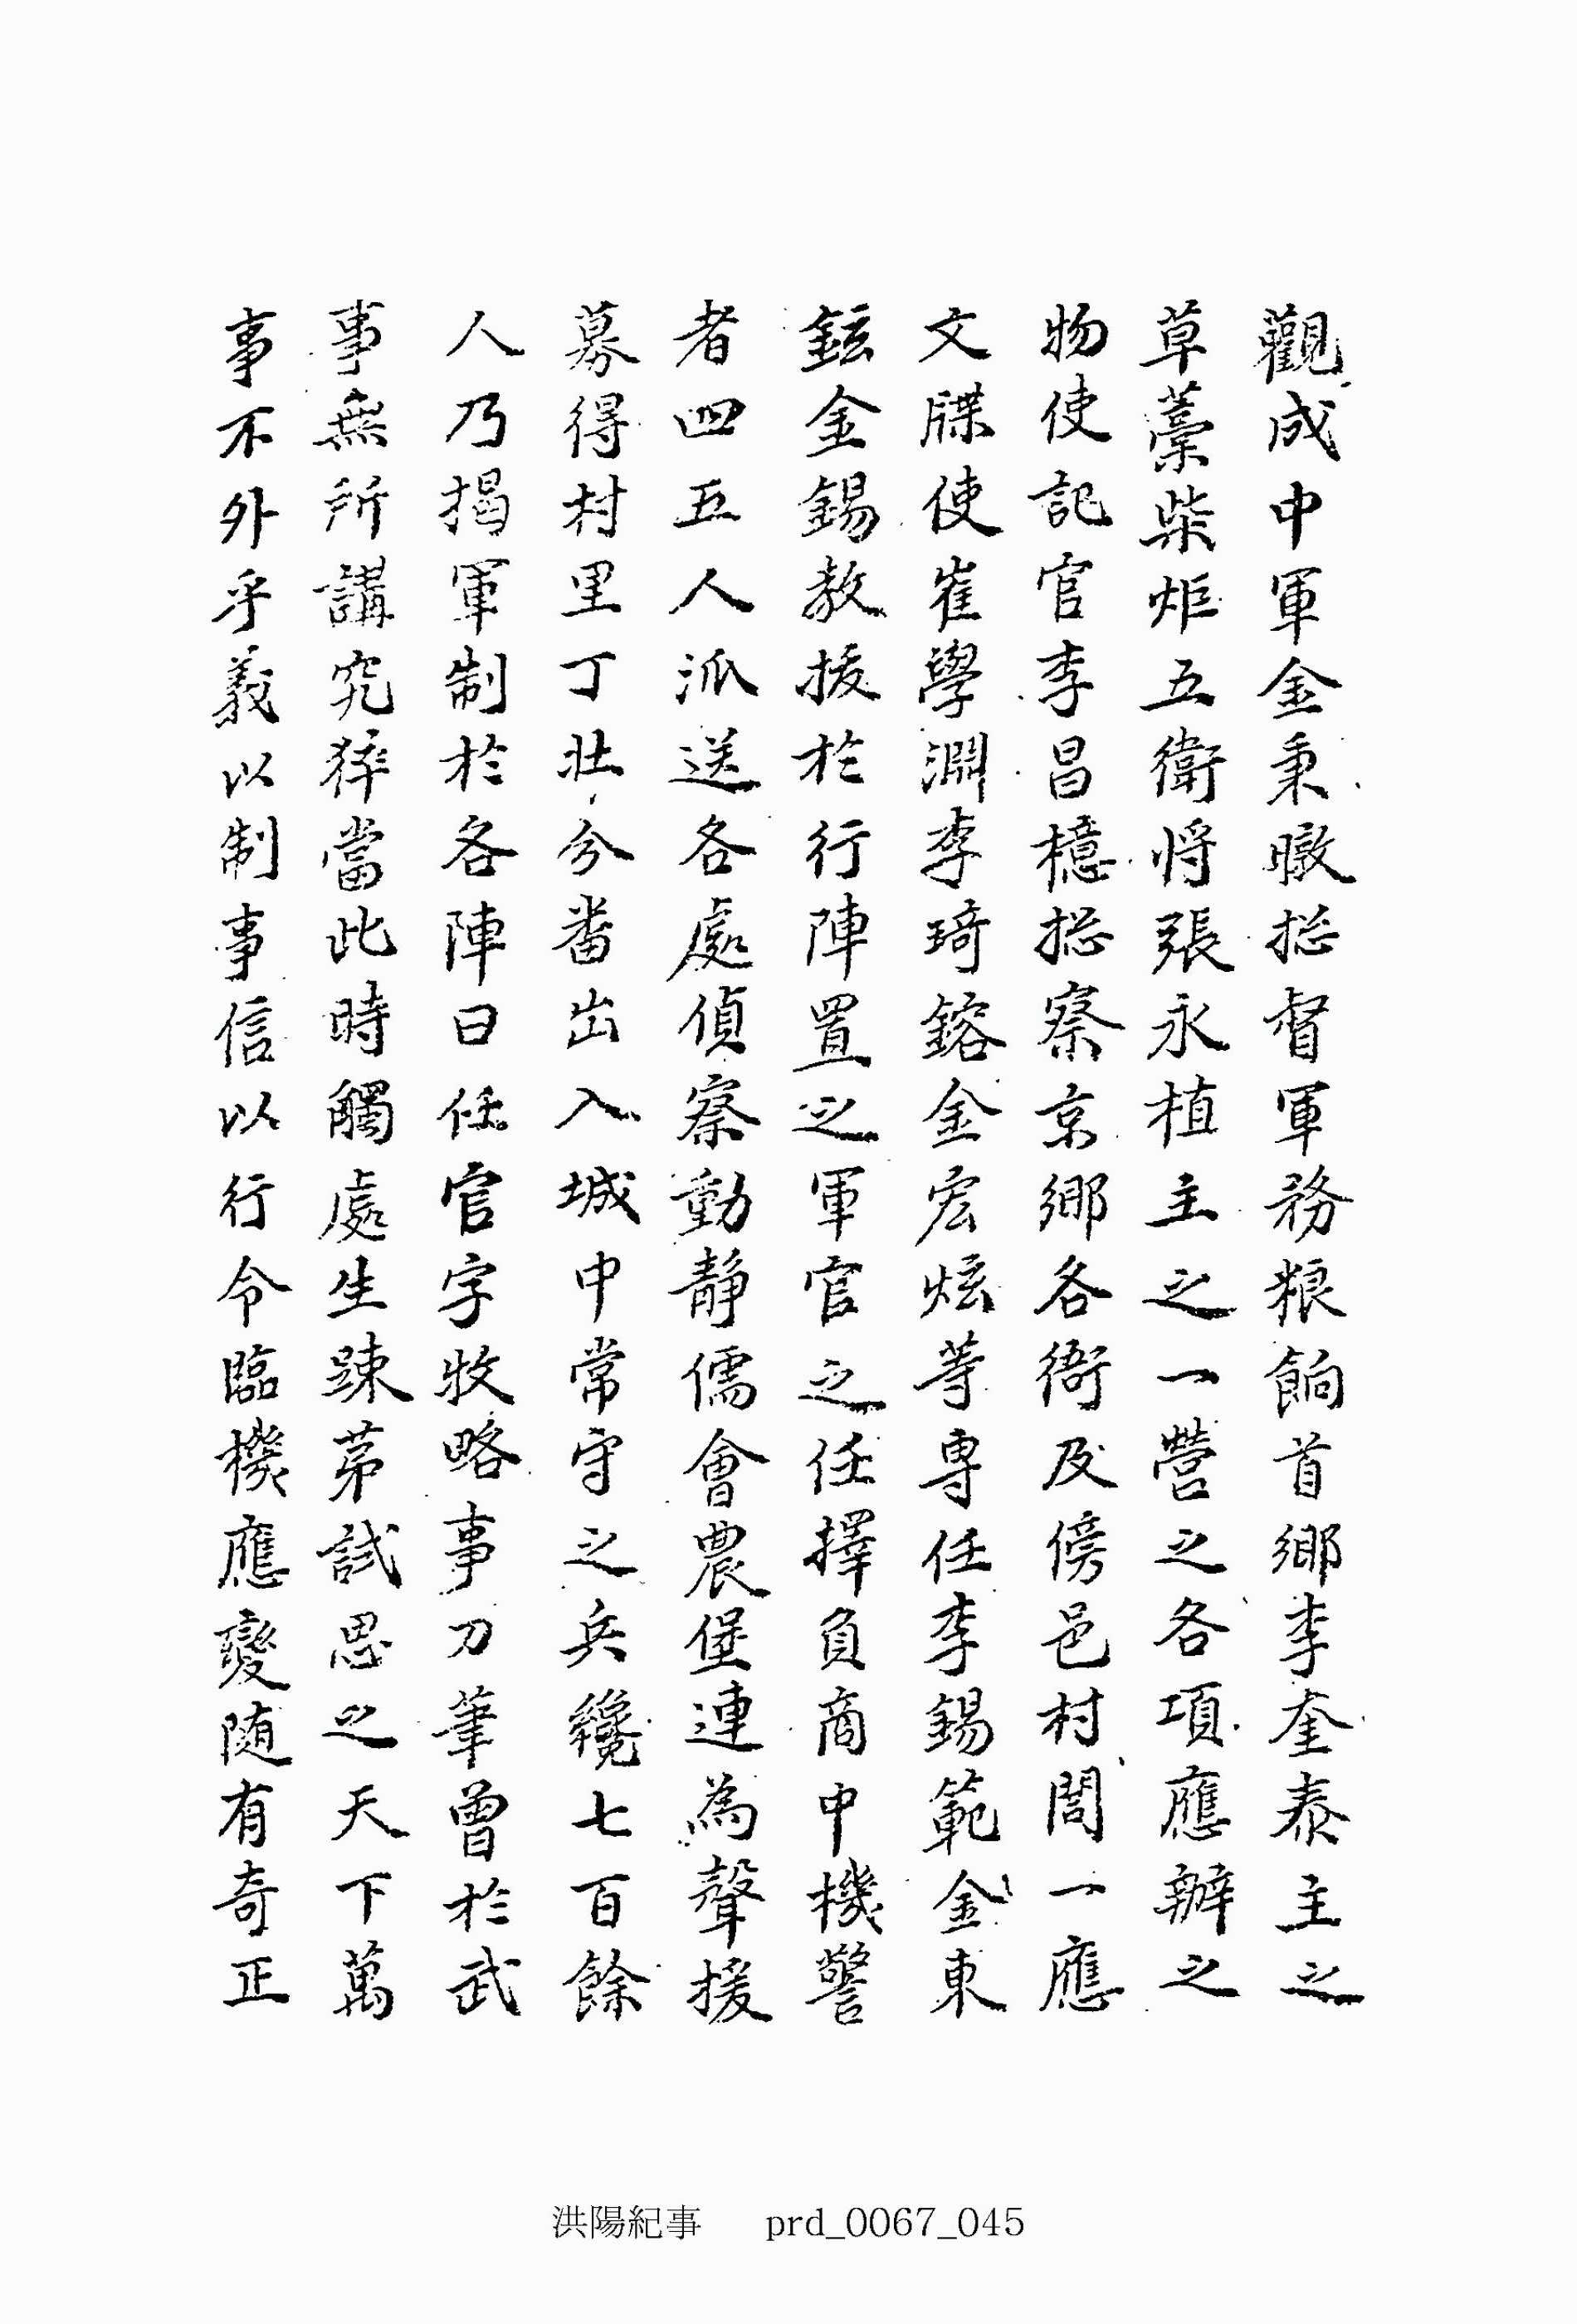 觀成中軍金秉暾摠督軍務粮餉首鄕李奎泰主之
草藁柴炬五衛將張永植主之一營之各項應辦之
物使記官李昌檍摠察京鄕各衙及傍邑村閭一應
文牒使崔學淵李琦鎔金宏炫等專任李錫範金東
鉉金錫敎援於行陣置之軍官之任擇負商中機警
者四五人派送各處偵察動靜儒會農堡連為聲援
募得村里丁壯分番出入城中常守之兵纔七百餘
人乃揭軍制於各陣曰任官字牧略事刀筆曾於武
事無所講究猝當此時觸處生踈苐試思之天下萬
事不外乎義以制事信以行令臨機應變随有奇正
洪陽紀事 prd_0067_045